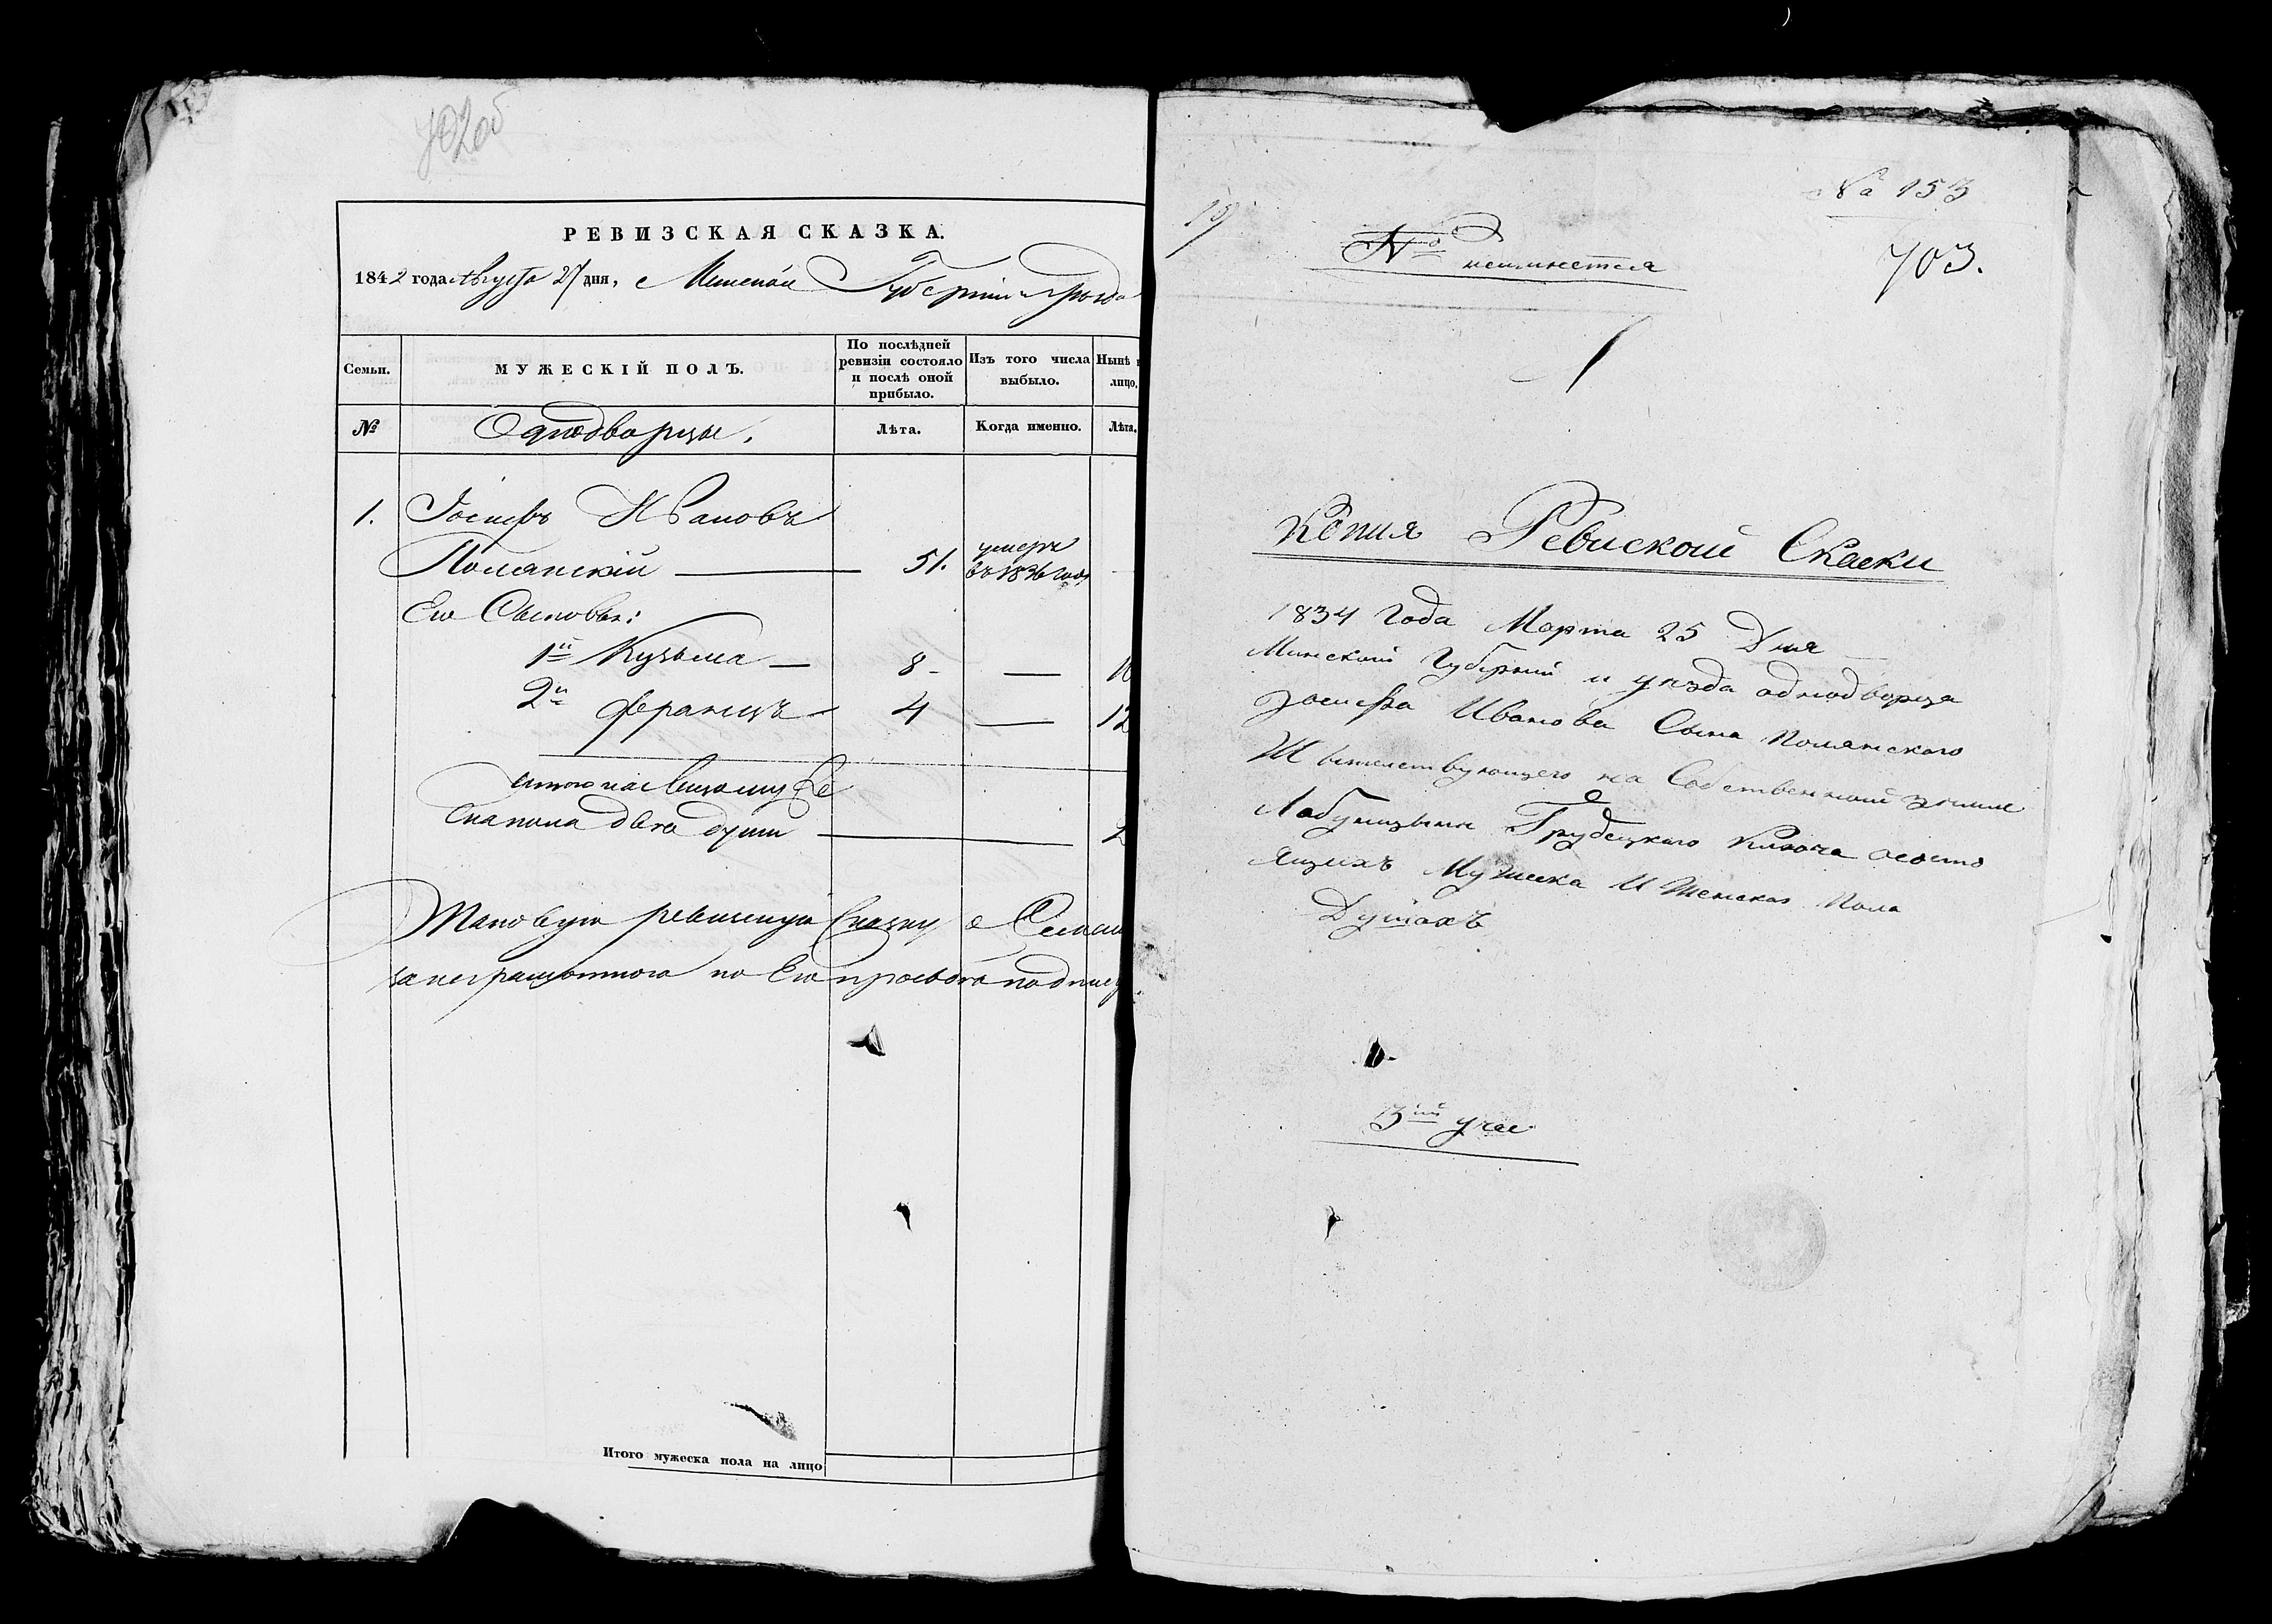 702об
РЕВИЗСКАЯ СКАЗКА.
1842 года Августа 27 дня, Минской Губерніи и уѣзда
Семьи.
МУЖЕСКІЙ ПОЛЪ.
По послѣдней ревизіи состояло и послѣ оной прибыло.
Изъ того числа выбыло.
Нынѣ
лицо,
№
Однодворцы.
Лѣта.
Когда именно.
Лѣта.
1. Іосифъ Ивановъ
Полянскій — 51. умеръ въ 1836 году
Его Сыновья:
1й Кузьма — 8 — 16
2й Францъ — 4 — 12
Итого налицо мужеска пола двѣ души — 2
Таковую ревизскую Сказку о Семьи
за неграмотнаго по Его прозбѣ подпис
Итого мужеска пола на лицо
№ 153
703.
№
1
Копия Ревиской Скаски
1834 Года Марта 25 Дня
Минской Губернии и уезда однодворца
Іосифа Иванова Сына Полянского
Жытелствующего на Собственной земле
Грудецкого Ключа ососто
ящихъ Мужеска И Женска Пола
Душахъ
3ий уча